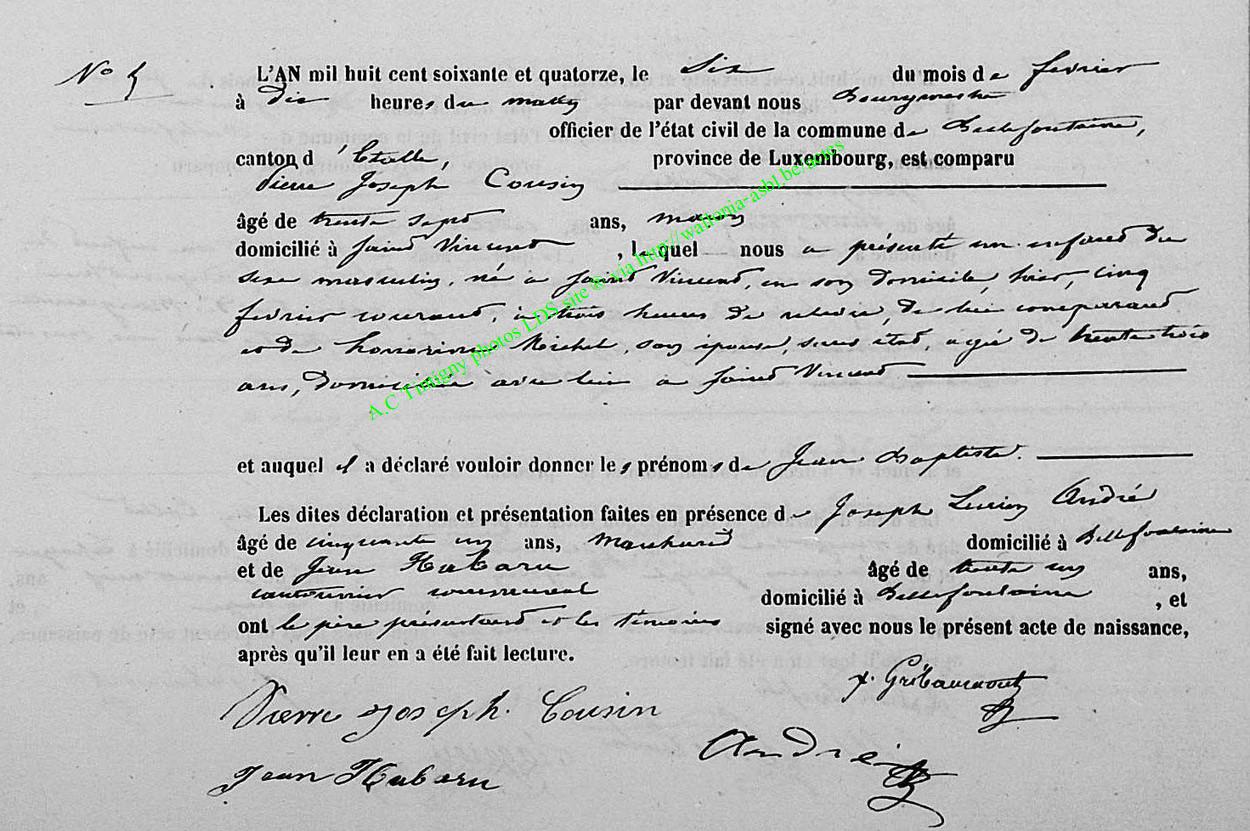 No 5
L'AN mil huit cent soixante et quatorze, le six du mois de fevrier
à dix heures du matin par devant nous Bourgmestre
officier de l'état civil de la commune de Bellefontaine,
canton d'Etalle, province de Luxembourg, est comparu
Pierre Joseph Cousin
âgé de trente sept ans, maçon
domicilié à Saint Vincent, lequel nous a présenté un enfant du
sexe masculin, né à Saint Vincent, en son domicile, hier, cinq
fevrier courant, à trois heures de relevée, de lui comparant
et de honorine Michel, son épouse, sans état, agée de trente trois
ans, domiciliée avec lui à Saint Vincent
et auquel il a déclaré vouloir donner les prénoms de Jean Baptiste.
Les dites déclaration et présentation faites en présence de Joseph Lucien André
âgé de cinquante un ans, marchand domicilié à Bellefontaine
et de Jean Habaru âgé de trente un ans,
cantonnier communal domicilié à Bellefontaine, et
ont le père présentant et les témoins signé avec nous le présent acte de naissance,
après qu'il leur en a été fait lecture.
Pierre Joseph Cousin
Jean Habaru
André
A.C Tintigny photos LDS site & via http://wallonia-asbl.be/actes